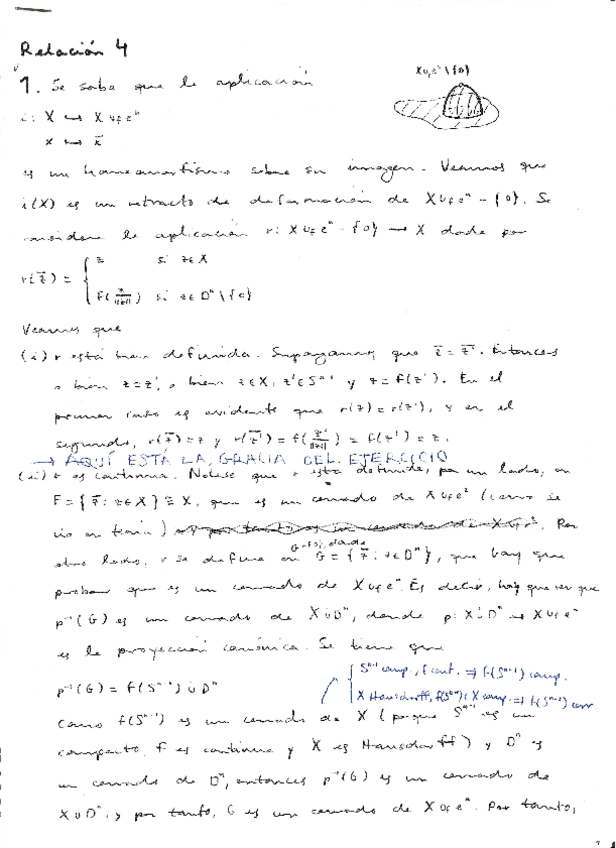 Relación 4
X∪_f eⁿ\{0}
1. Se sabe que la aplicación
i: X ↪ X ∪_f eⁿ
x ↪ x̄
es un homeomorfismo sobre su imagen. Veamos que
i(X) es un retracto de deformación de X∪_f eⁿ - {0}. Se
considera la aplicación r: X∪_f eⁿ - {0} → X dada por
r(z̄) = { z si z∈X
f(z/||z||) si z∈Dⁿ\{0}
Veamos que
(i) r está bien definida. Supongamos que z̄ = z̄'. Entonces
o bien z=z', o bien z∈X, z'∈Sⁿ⁻¹ y z=f(z'). En el
primer caso es evidente que r(z)=r(z'), y en el
segundo, r(z̄)=z y r(z̄')=f(z'/||z'||)=f(z')=z.
→ AQUÍ ESTÁ LA GRACIA DEL EJERCICIO
(ii) r es continua. Nótese que r está definida, por un lado, en
F={z̄ : z∈X}≅X, que es un cerrado de X∪_f e² (como se
vio en teoría). Por
otro lado, r se define en G-{0}, donde G={z̄ : z∈Dⁿ}, que hay que
probar que es un cerrado de X∪_f eⁿ. Es decir, hay que ver que
p⁻¹(G) es un cerrado de X∪̇Dⁿ, donde p: X∪̇Dⁿ → X∪_f eⁿ
es la proyección canónica. Se tiene que
{ Sⁿ⁻¹ comp., f cont. ⇒ f(Sⁿ⁻¹) comp.
X Hausdorff, f(Sⁿ⁻¹)⊂X comp. ⇒ f(Sⁿ⁻¹) cerr
p⁻¹(G) = f(Sⁿ⁻¹) ∪̇ Dⁿ
Como f(Sⁿ⁻¹) es un cerrado de X (porque Sⁿ⁻¹ es un
compacto, f es continua y X es Hausdorff) y Dⁿ es
un cerrado de Dⁿ, entonces p⁻¹(G) es un cerrado de
X∪̇Dⁿ, y por tanto, G es un cerrado de X∪_f eⁿ. Por tanto,